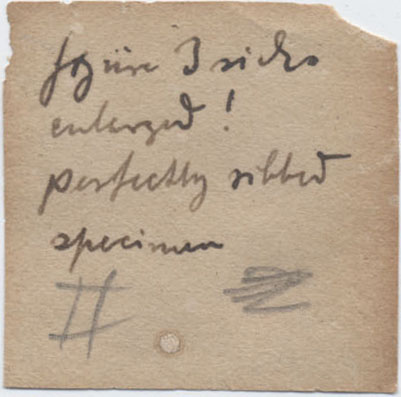 figüre 3 sides
enlarged!
perfectly ribbed
specimen
#